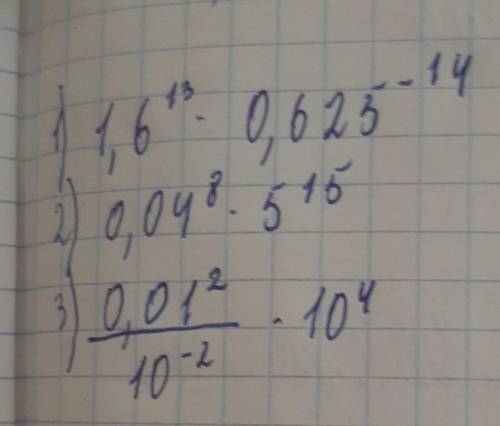 1) 1,6¹³ · 0,625⁻¹⁴
2) 0,04⁸ · 5¹⁵
3) 0,01² / 10⁻² · 10⁴